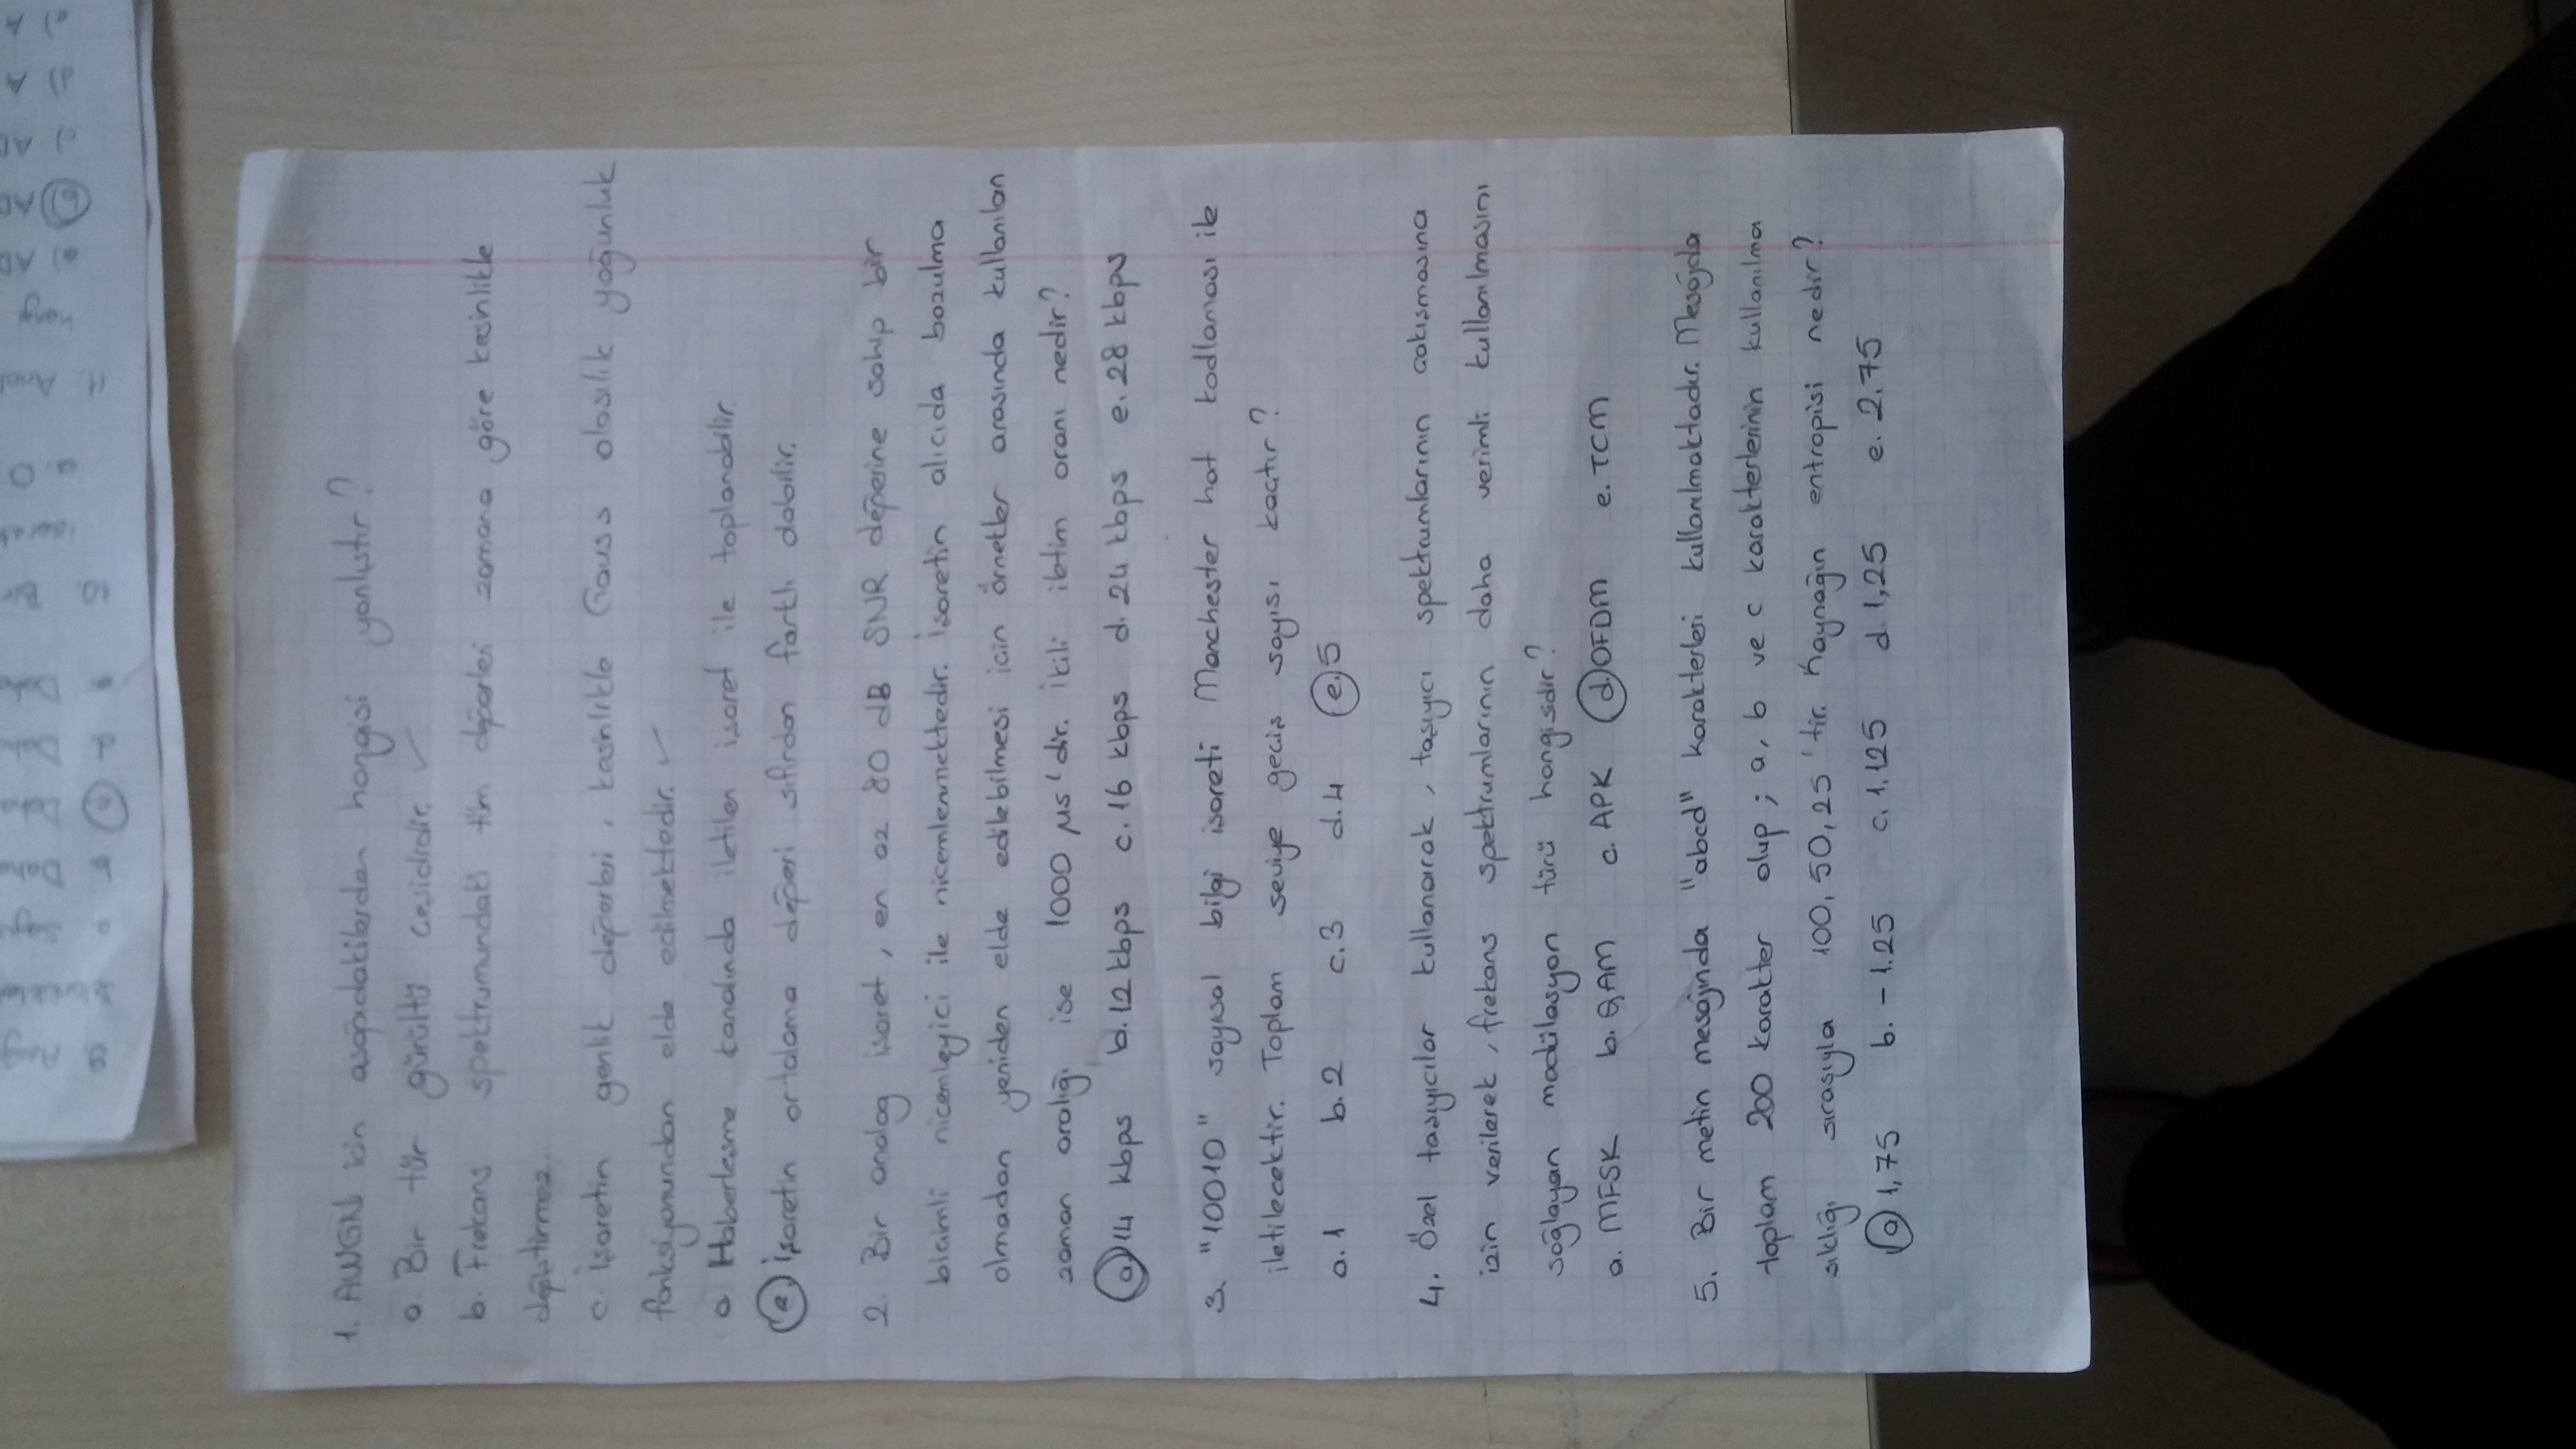 1. AWGN için aşağıdakilerden hangisi yanlıştır?
a. Bir tür gürültü çeşididir. ✓
b. Frekans spektrumundaki tüm değerleri zamana göre kesinlikle
değiştirmez.
c. İşaretin genlik değerleri, kesinlikle Gauss olasılık yoğunluk
fonksiyonundan elde edilmektedir. ✓
d Haberleşme kanalında iletilen işaret ile toplanabilir
e. İşaretin ortalama değeri sıfırdan farklı olabilir.
2. Bir analog işaret, en az 80 dB SNR değerine sahip bir
biçimli nicemleyici ile nicemlenmektedir. İşaretin alıcıda bozulma
olmadan yeniden elde edilebilmesi için örnekler arasında kullanılan
zaman aralığı ise 1000 µs'dir. İkili iletim oranı nedir?
a) 14 kbps b. 12 kbps c. 16 kbps d. 24 kbps e. 28 kbps
3. "10010" sayısal bilgi işareti Manchester hat kodlaması ile
iletilecektir. Toplam seviye geçiş sayısı kaçtır?
a. 1 b. 2 c. 3 d. 4 e. 5
4. Özel taşıyıcılar kullanarak, taşıyıcı spektrumlarının çakışmasına
izin verilerek, frekans spektrumlarının daha verimli kullanılmasını
sağlayan modülasyon türü hangisidir?
a. MFSK b. QAM c. APK d. OFDM e. TCM
5. Bir metin mesajında "abcd" karakterleri kullanılmaktadır. Mesajda
toplam 200 karakter olup; a, b ve c karakterlerinin kullanılma
sıklığı sırasıyla 100, 50, 25'tir. Kaynağın entropisi nedir?
a) 1,75 b. -1.25 c. 1.125 d. 1,25 e. 2.75
9 Aşağı
a Sayı
b Daha
c Daha
d. Daha
e Daha
10. Bir
işaret
a. O
11. Anal
hang
a) AD
b) AD
c) AD
d) A
e) A